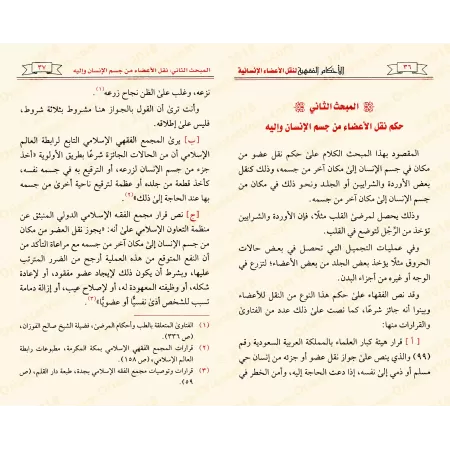 ٣٦
الأحكام الفقهية لنقل الأعضاء الإنسانية
المبحث الثاني
حكم نقل الأعضاء من جسم الإنسان وإليه
المقصود بهذا المبحث الكلام على حكم نقل عضو من
مكان في جسم الإنسان إلى مكان آخر من جسمه، وذلك كنقل
بعض الأوردة والشرايين أو الجلد ونحو ذلك في مكان من
جسم الإنسان إلى مكان آخر من جسمه.
وذلك يحصل لمرضى القلب مثلًا، فإن الأوردة والشرايين
تؤخذ من الرِّجل لتوضع في القلب.
وفي عمليات التجميل التي تحصل في بعض حالات
الحروق مثلًا يؤخذ بعض الجلد من بعض الأعضاء؛ لتزرع في
الوجه أو غيره من أجزاء البدن.
وقد نص الفقهاء على حكم هذا النوع من النقل للأعضاء
وبينوا أنه جائز شرعًا، كما نصت على ذلك عدد من الفتاوىٰ
والقرارات منها:
[أ] قرار هيئة كبار العلماء بالمملكة العربية السعودية رقم
(٩٩) والذي ينص على جواز نقل عضو أو جزئه من إنسان حي
مسلم أو ذمي إلى نفسه، إذا دعت الحاجة إليه، وأمن الخطر في
المبحث الثاني: نقل الأعضاء من جسم الإنسان وإليه
٣٧
نزعه، وغلب على الظن نجاح زرعه(١).
وأنت ترىٰ أن القول بالجواز هنا مشروط بثلاثة شروط،
فليس على إطلاقه.
[ب] يرىٰ المجمع الفقهي الإسلامي التابع لرابطة العالم
الإسلامي أن من الحالات الجائزة شرعًا بطريق الأولوية «أخذ
جزء من جسم الإنسان لزرعه، أو الترقيع به في نفسه جسمه،
كأخذ قطعة من جلده أو عظمة لترقيع ناحية أخرىٰ من جسمه
بها عند الحاجة إلى ذلك»(٢).
[ج] نص قرار مجمع الفقه الإسلامي الدولي المنبثق عن
منظمة التعاون الإسلامي على أنه: «يجوز نقل العضو من مكان
من جسم الإنسان إلى مكان آخر من جسمه مع مراعاة التأكد من
أن النفع المتوقع من هذه العملية أرجح من الضرر المترتب
عليها، وبشرط أن يكون ذلك لإيجاد عضو مفقود، أو لإعادة
شكله، أو وظيفته المعهودة له، أو لإصلاح عيب، أو إزالة دمامة
تسبب للشخص أذىٰ نفسيًّا أو عضويًّا»(٣).
(١) الفتاوىٰ المتعلقة بالطب وأحكام المرضى، فضيلة الشيخ صالح الفوزان،
(ص ٣٣٦).
(٢) قرارات المجمع الفقهي الإسلامي بمكة المكرمة، مطبوعات رابطة
العالم الإسلامي، (ص ١٥٨).
(٣) قرارات وتوصيات مجمع الفقه الإسلامي بجدة، طبعة دار القلم، (ص
٥٩).